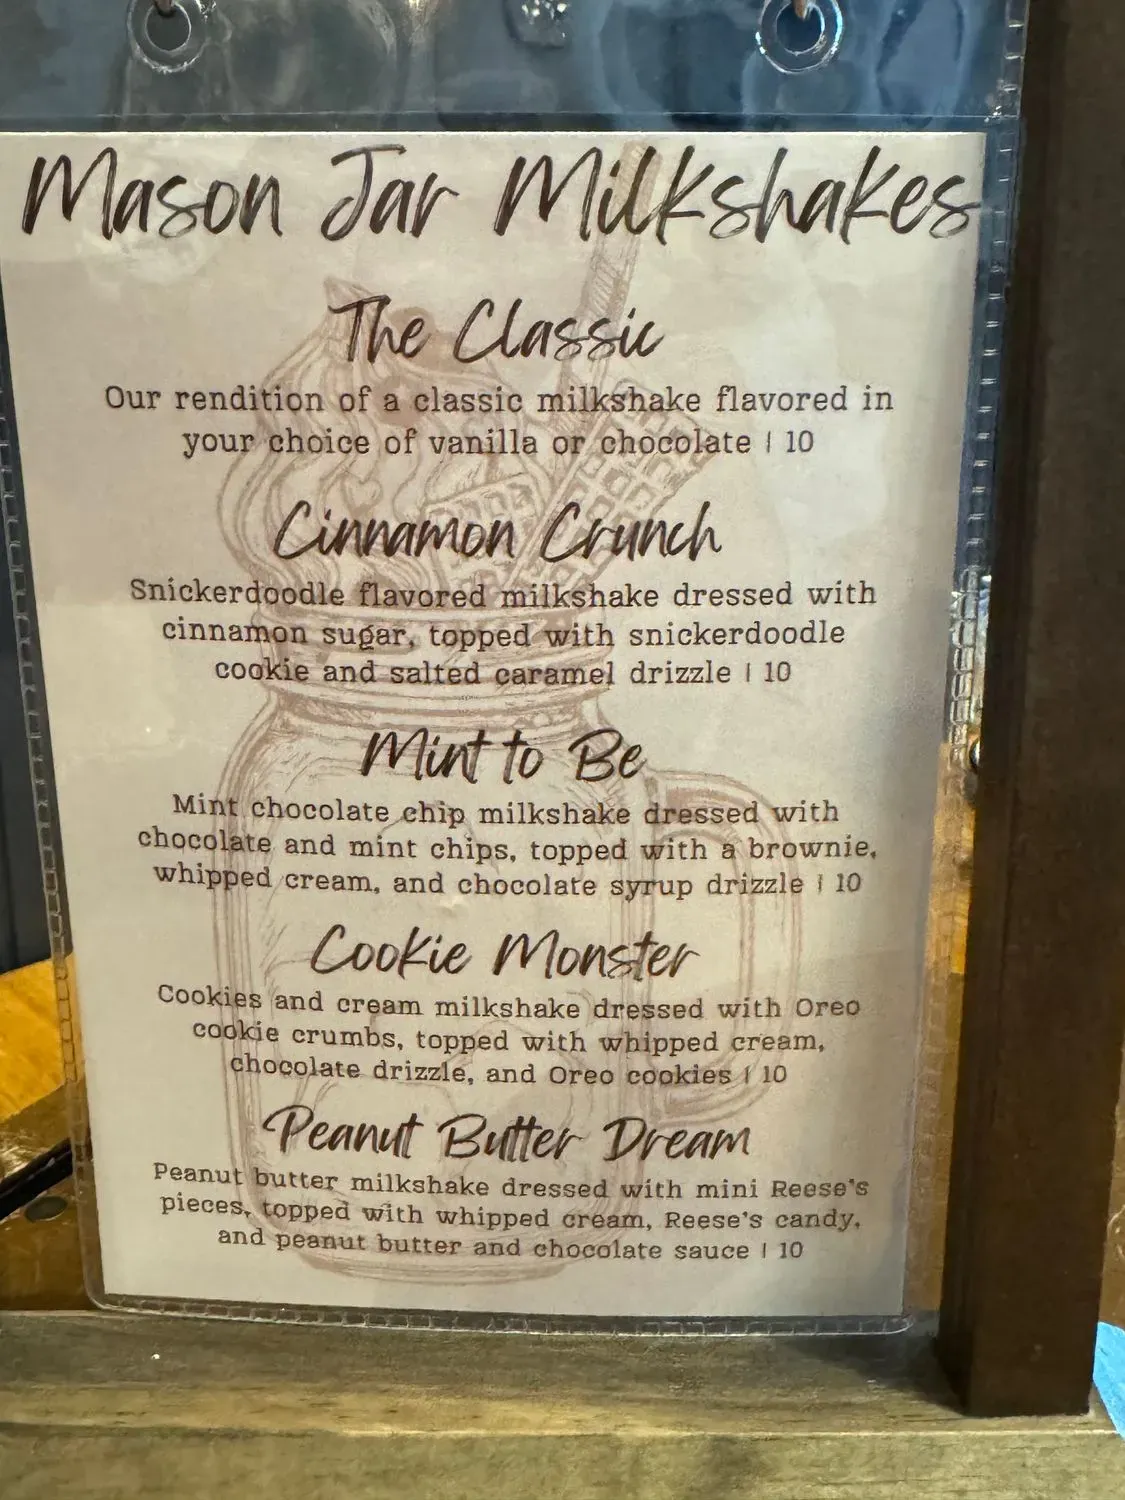 Mason Jar Milkshakes
The Classic
Our rendition of a classic milkshake flavored in
your choice of vanilla or chocolate | 10
Cinnamon Crunch
Snickerdoodle flavored milkshake dressed with
cinnamon sugar, topped with snickerdoodle
cookie and salted caramel drizzle | 10
Mint to Be
Mint chocolate chip milkshake dressed with
chocolate and mint chips, topped with a brownie,
whipped cream, and chocolate syrup drizzle | 10
Cookie Monster
Cookies and cream milkshake dressed with Oreo
cookie crumbs, topped with whipped cream,
chocolate drizzle, and Oreo cookies | 10
Peanut Butter Dream
Peanut butter milkshake dressed with mini Reese's
pieces, topped with whipped cream, Reese's candy,
and peanut butter and chocolate sauce | 10